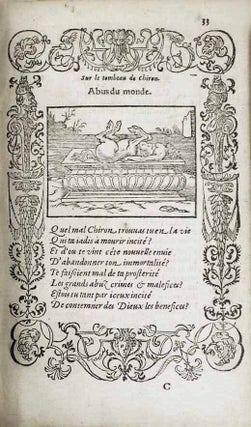 33
Sur le tombeau de Chiron.
Abus du monde.
Quel mal Chiron, trouuas tu en la vie
Qui ta iadis a mourir incité?
Et d'ou te vint cète nouuelle enuie
D'abandonner ton immortalité?
Te faisoient mal de ta prosterité
Les grands abuz crimes & malefices?
Estois tu tant par iceux incité
De contemner des Dieux les benefices?
C